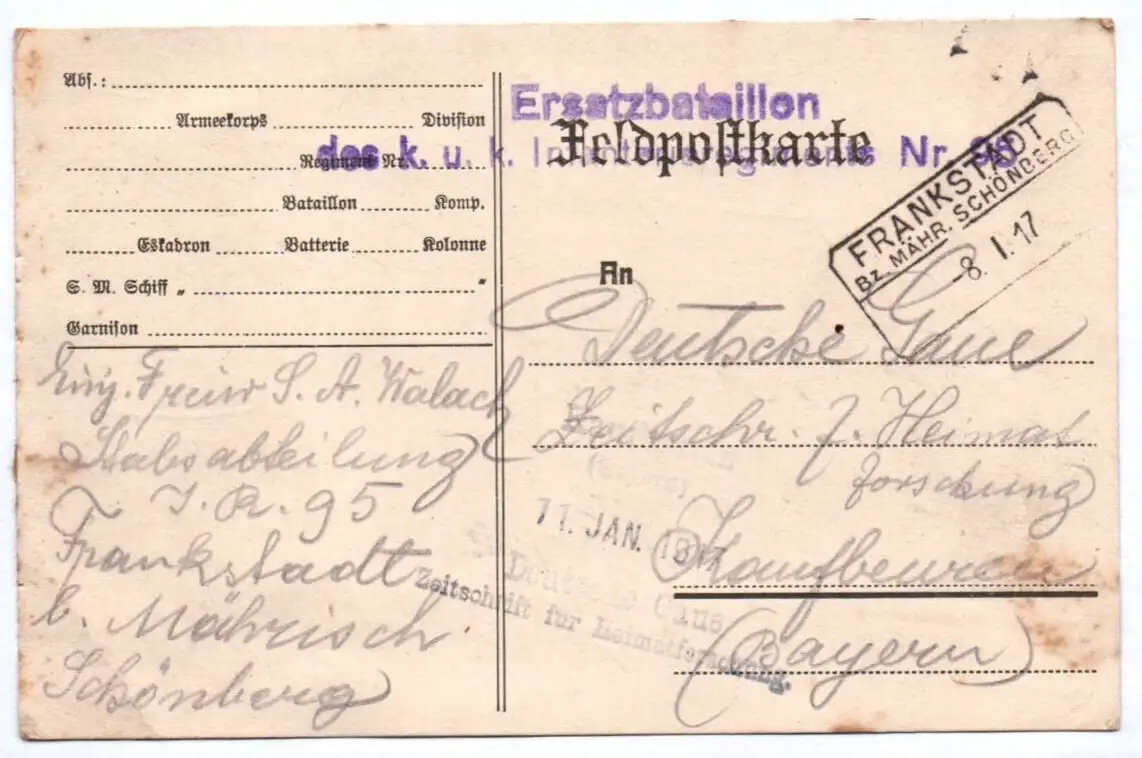 Abs.:
Armeekorps Division
Regiment Nr.
Bataillon Komp.
Eskadron Batterie Kolonne
S. M. Schiff „ “
Garnison
Einj. Freiw S. A. Walach
Stabsabteilung
I. R. 95
Frankstadt
b. Mährisch
Schönberg
Ersatzbataillon
des k. u. k. Infanterieregiments Nr.
Feldpostkarte
FRANKSTADT
Bz. MÄHR. SCHÖNBERG
-8. I. 17
An
Deutsche Gaue
Zeitschr. f. Heimat
forschung
Kaufbeuren
(Bayern)
11. JAN. 1917
Deutsche Gaue
Zeitschrift für Heimatforschung.